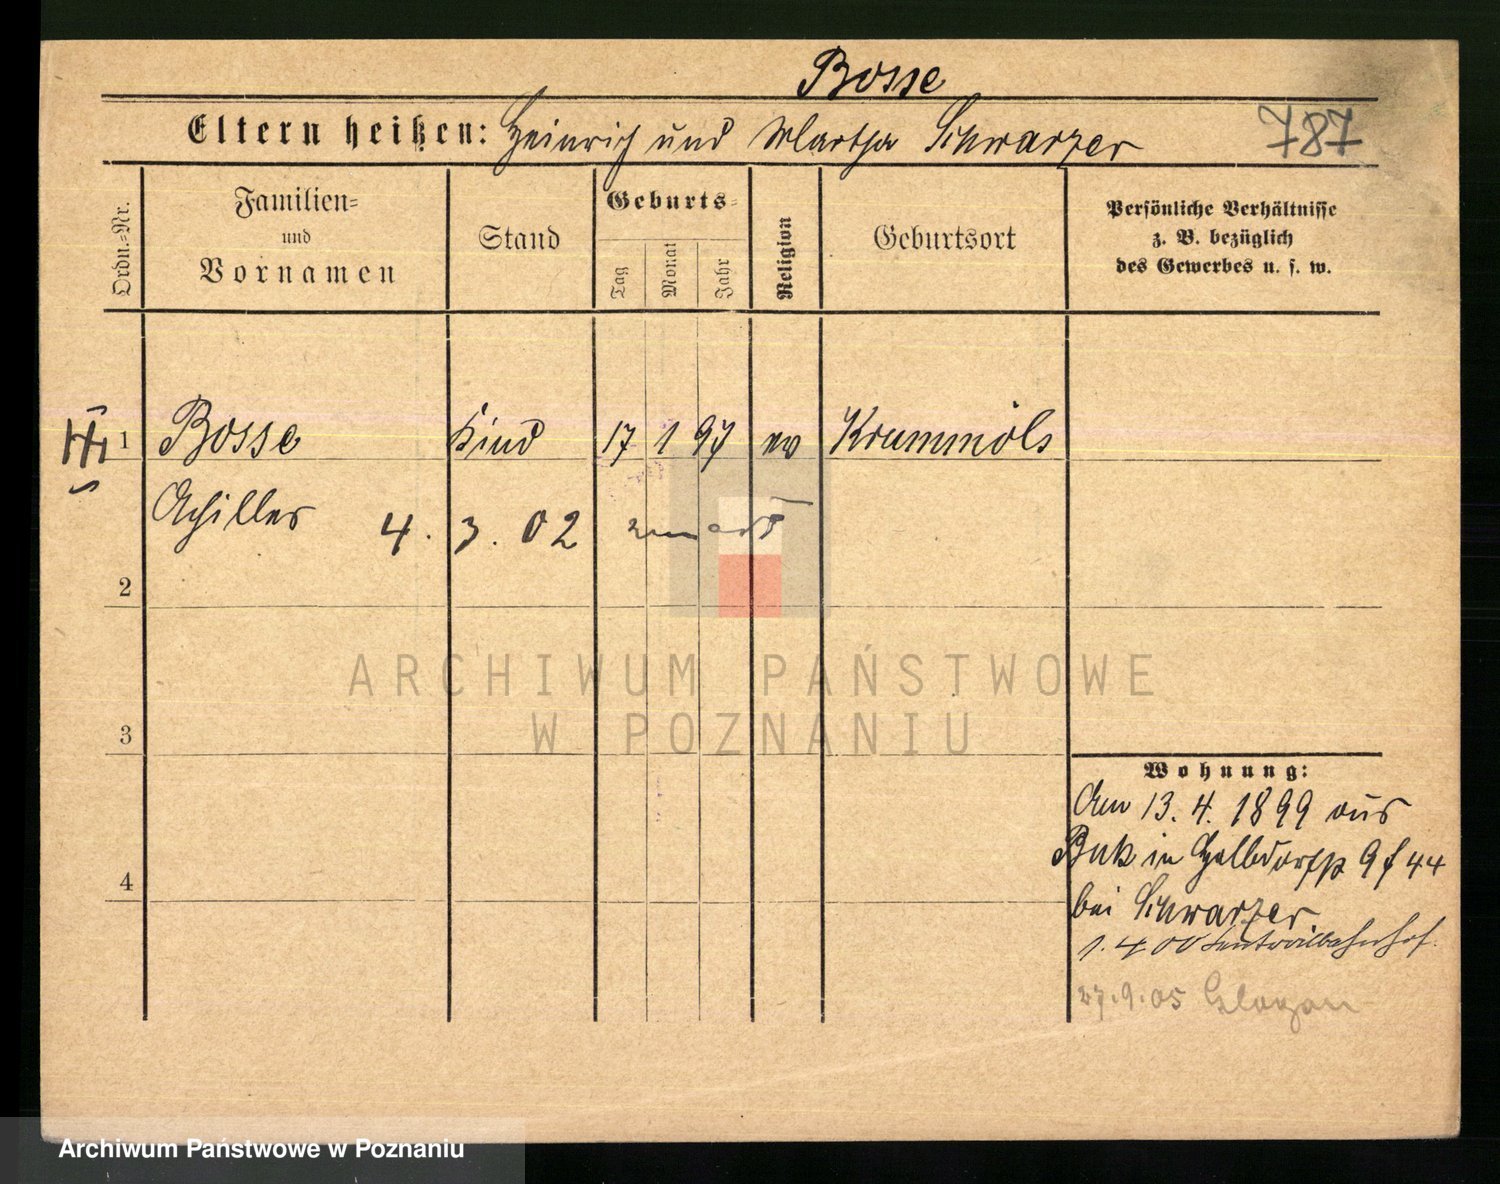 Bosse
Eltern heißen: Heinrich und Martha Schwarzer
787
Ordn.-Nr.
Familien-
und
Vornamen
Stand
Geburts-
Tag
Monat
Jahr
Religion
Geburtsort
Persönliche Verhältnisse
z. B. bezüglich
des Gewerbes u. s. w.
1 Bosse Kind 17 1 97 ev Krummöls
Achilles 4. 3. 02
2
3
4
Wohnung:
Am 13.4.1899 aus
Buk in 9 f 44
bei Schwarzer
1.4 00 Centralbahnhof.
27.9.05 Glogau
ARCHIWUM PAŃSTWOWE
W POZNANIU
Archiwum Państwowe w Poznaniu